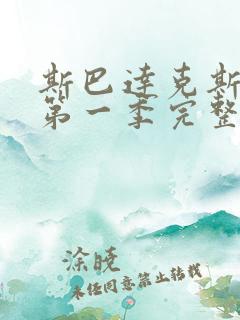 斯巴达克斯
第一季完整
涂晓
未经同意禁止转载